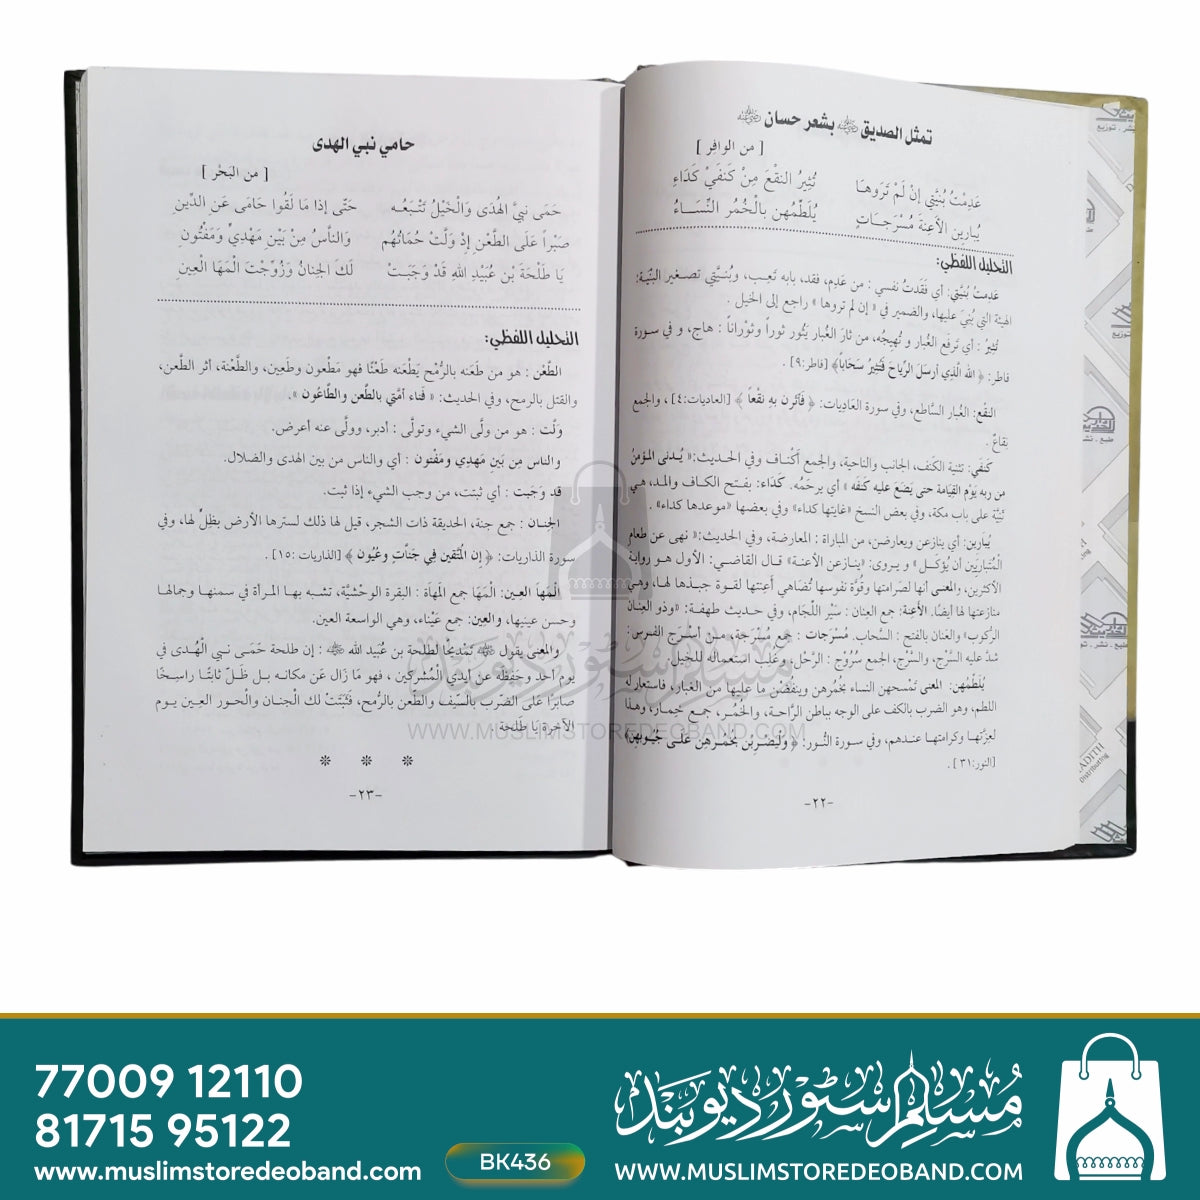 تمثل الصديق ﷺ بشعر حسان ﷺ
[ من الوافر ]
عَدِمْتُ بُنَيَّتي إنْ لَمْ تَرَوهَا تُثِيرُ النقْعَ مِنْ كَنَفَيْ كَدَاءِ
يُبارِين الأعِنةَ مُسْرَجاتٍ يُلَطِّمُهن بالْخُمُر النِّسَاءُ
التحليل اللفظي:
عَدِمتُ بُنَيَّتي: أي فَقدتُ نفسي : من عَدِم، فقد، بابه تَعِب، وبُنيَّتي تصغير البُنْيَة:
الهيئة التي بُنيَ عليها، والضمير في « إن لم تروها » راجع إلى الخيل .
تُثِيرُ : أي تَرفع الغُبار و تُهيِجُه، من ثارَ الغُبار يَثُور ثَوراً وثَوْراناً : هاج، و في سورة
فاطر: ﴿ الله الَّذِي أرسَلَ الرِّيَاحَ فَتُثِيرُ سَحَاباً﴾ [فاطر:٩] .
النقْع: الغُبار السَّاطع، وفي سورة العَادِيات: ﴿ فَأَثَرن بِهِ نقْعاً ﴾ [العاديات:٤] ، والجمع
نِقاعٌ .
كَنَفي: تثنية الكَنَف، الجانب والناحية، والجمع أكْناف وفي الحديث:« يُدنى المؤمنُ
من ربه يَوْم القِيَامة حتى يَضَعَ عليه كَنَفَه » أي يرحَمُه. كَدَاء: بفتح الكاف والمد، هي
ثَنِيَّة على باب مكة، وفي بعض النسخ «غايتها كداء» وفي بعضها «موعدها كداء» .
يُبارين: أي ينازعن ويعارضن، من المباراة : المعارضة، وفي الحديث:« نهى عن طعام
الْمُتبارِيَين أن يُؤكَل » و يروى: «ينازعن الأعنة» قال القاضي: الأول هو رواية
الأكثرين، والمعنى أنها لصَرامتها وقُوَّة نفوسها تُضاهي أعِنتها لقوة جبذها لها، وهي
منازعتها لها أيضًا. الأعِنة: جمع العنان : سَيْر اللِّجَام، وفي حديث طهفة: «وذو العِنان
الرَّكوب» والعَنان بالفتح : السَّحاب. مُسْرَجات : جمع مُسْرَجَة، من أسْرَج الفَرس:
شدَّ عليه السَّرْج، والسَّرْج، الجمع سُرُوْج : الرَّحْل، وغلَب استعماله للخيل .
يُلَطِّمُهن: المعنى تَمْسحهن النساء بخُمُرهن وينفُضْن ما عليها من الغبَار، فاستعار له
اللطم، وهو الضرب بالكف على الوجه بباطن الرَّاحة، والخُمُر، جمع خِمار، وهذا
لعِزّتها وكرامتها عندهم، وفي سورة النُّور: ﴿ ولْيَضرِبن بخُمُرهن على جُيوبهن﴾
[النور:٣١] .
-٢٢-
حامي نبي الهدى
[ من البَحْر ]
حَمَى نبيَّ الهُدَى وَالْخَيْلُ تَتْبَعُه حَتّى إذا مَا لَقُوا حَامَى عَن الدِّينِ
صَبْراً عَلَى الطَّعْنِ إذ وَلَّتْ حُمَاتُهُم وَالنَّاسُ مِنْ بَيْن مَهْدِيٍّ ومَفْتُونِ
يَا طَلْحَةَ بْن عُبَيْد الله قَدْ وَجَبَتْ لَكَ الجنانُ وَزُوِّجْتَ الْمَهَا الْعِينِ
التحليل اللفظي:
الطَّعْن : هو من طَعَنه بالرُّمْح يَطْعَنه طَعْنًا فهو مَطْعون وطَعِين، والطَّعْنة، أثر الطَّعن،
والقتل بالرمح، وفي الحديث: « فَناء أمّتي بالطَّعن والطَّاعُون ».
وَلّت : هو من ولَّى الشيء وتولَّى : أدبر، وولَّى عنه أعرض.
والناس مِن بَين مَهدِي ومَفْتون : أي والناس من بين الهدى والضلال.
قد وَجَبت : أي ثبتت، من وجب الشيء إذا ثبت.
الجِنان : جمع جنة، الحديقة ذات الشجر، قيل لها ذلك لسترها الأرض بظِلِّها، وفي
سورة الذاريات: ﴿ إن الْمُتّقين في جَنَّاتٍ وعُيون ﴾ [الذاريات :١٥] .
الْمَهَا العِين: الْمَهَا جمع المَهاة : البقرة الوحْشيَّة، تشبه بها المرأة في سمنها وجمالها
وحسن عينيها، والعِين: جمع عَيْناء، وهي الواسعة العين.
والمعنى يقول ﷺ تَمْدِيحًا لطلحة بن عُبَيد الله ﷺ : إن طلحة حَمَى نبي الْهُدى في
يوم أحد وحفِظَه عن أيدي الْمُشركين ، فهو مَا زَال عَن مكانه بل ظَلّ ثابتًا راسِخًا
صابرًا عَلَى الضّرب بالسّيف والطّعن بالرُّمح، فَثَبتَتْ لك الجنان والحور العِين يوم
الآخرة يَا طَلحة .
❊ ❊ ❊
-٢٣-
مسلم ستور ديوبند
WWW.MUSLIMSTOREDEOBAND.COM
77009 12110
81715 95122
www.muslimstoredeoband.com
BK436
مسلم ستور ديوبند
WWW.MUSLIMSTOREDEOBAND.COM